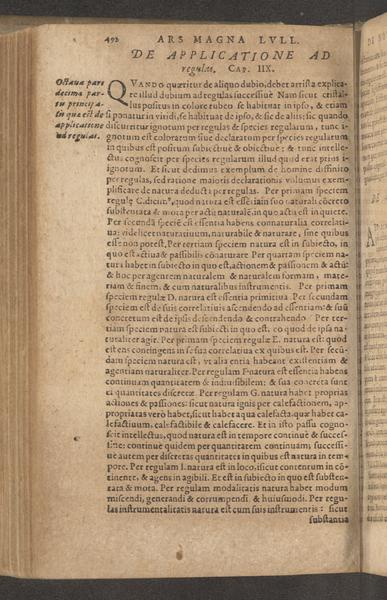 492 ARS MAGNA LVLL.
DE APPLICATIONE AD
regulas, CAP. IIX.
Octaua pars
decimæ par-
tis principa-
lis quæ est de
applicatione
ad regulas.
QVANDO quæritur de aliquo dubio, debet artista explica-
re illud dubium ad regulas necessariè. Nam sicut cristal-
lus positus in colore rubeo se habituat in ipso, & etiam
si ponatur in viridi, se habituat de ipso, & sic de alijs: sic quando
discurritur ignotum per regulas & species regularum, tunc i-
gnotum est coloratum siue declaratum per species regularum
in quibus est positum subiectiuè & obiectiuè; & tunc intelle-
ctus cognoscit per species regularum illud quod erat prius i-
gnotum. Et sicut dedimus exemplum de homine diffinito
per regulas, sed ratione maioris declarationis volumus exem-
plificare de natura deducta per regulas. Per primam speciem
regulæ C. dicim', quod natura est ens
substentata & mota per actū naturalē in quo actu est in quiete.
Per secundā speciē est essentia habens connaturalia correlati-
ua: videlicet naturatiuum, naturabile & naturare, sine quibus
esse non potest. Per tertiam speciem natura est in subiecto, in
quo est actiua & passibilis cōnaturare. Per quartam speciem na-
tura habet in subiecto in quo est actionem & passionem & actū:
& hoc per agentem naturalem & naturalem formam, mate-
riam & finem, & cum naturalibus instrumentis. Per primam
speciem regulæ D. natura est essentia primitiua. Per secundam
speciem est de suis correlatiuis ascendendo ad essentiam: & suū
concretum est de ipsis descendendo & contrahendo. Per ter-
tiam speciem natura est subiecti in quo est, eo quod de ipsa na-
turaliter agit. Per primam speciem regulæ E. natura est: quod
est ens contingens in se sua correlatiua ex quibus est. Per secū-
dam speciem natura est: vt alia entia habeant existentiam &
agentiam naturaliter. Per regulam F. natura est essentia habens
continuam quantitatem & indiuisibilem: & sua concreta sunt
ei quantitates discretæ. Per regulam G. natura habet proprias
actiones & passiones: sicut natura ignis per calefactionem, ap-
propriatas verò habet, sicut habet aqua calefacta. quæ habet ca-
lefactiuum, calefactibile & calefacere. Et in isto passu cogno-
scit intellectus, quod natura est in tempore continuè & succes-
siuè: continuè quidem per quantitatem continuam, successi-
uè autem per discretas quantitates in quibus est natura in tem-
pore. Per regulam I. natura est in loco, sicut contentum in cō-
tinente, & agens in agibili. Et est in subiecto in quo est substen-
tata & mota. Per regulam modalitatis natura habet modum
miscendi, generandi & corrumpendi. & huiusmodi. Per regu-
las instrumentalitatis natura est cum suis instrumentis: sicut
substantia